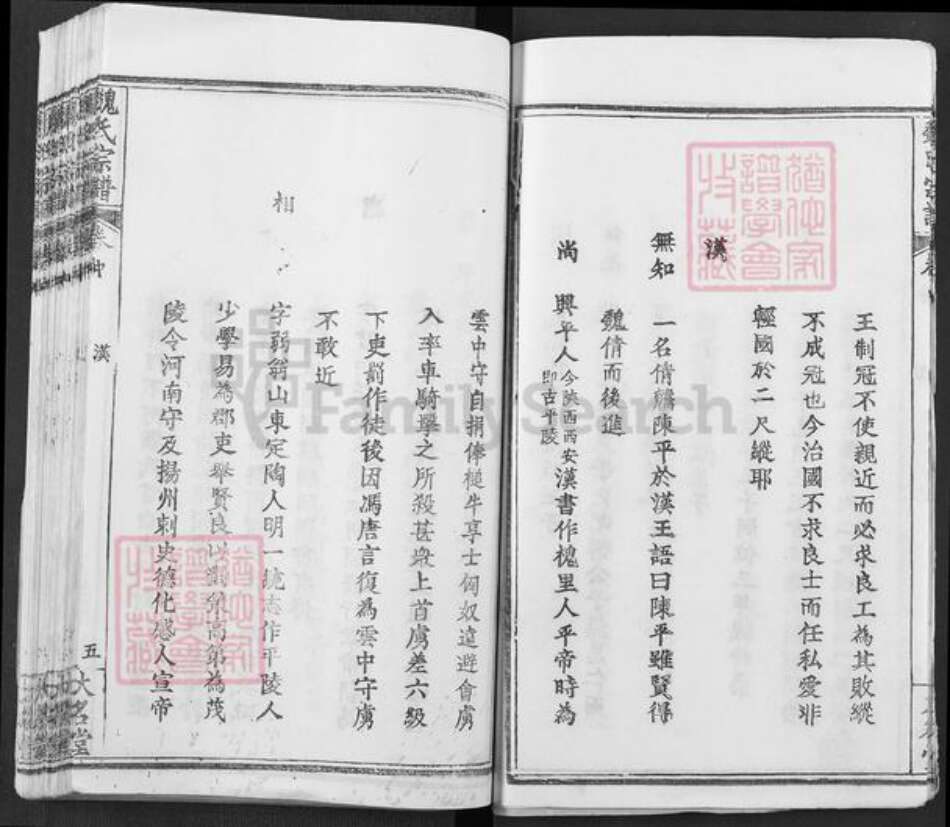 王制冠不使親近而必求良工為其敗縱
不成冠也今治國不求良士而任私愛非
輕國於二尺縱耶
漢
無知 一名倩薦陳平於漢王語曰陳平雖賢得
魏倩而後進
尚 興平人今陝西西安即古平陵漢書作槐里人平帝時為
雲中守自捐俸槌牛享士匈奴遠避會虜
入率車騎擊之所殺甚衆上首虜差六級
下吏罰作徒後因馮唐言復為雲中守虜
不敢近
相 字弱翁山東定陶人明一統志作平陵人
少學易為郡吏舉賢良以對策高第為茂
陵令河南守及揚州刺史德化感人宣帝
魏氏宗譜
卷中
漢
五
大名堂
FamilySearch
譜學會
收藏